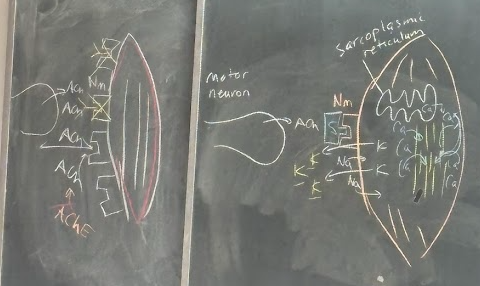 ACh
Nm
ACh
ACh
ACh
AChE
sarcoplasmic
reticulum
motor
neuron
Nm
ACh
S
K
K
K
K
K
Na
Na
Ca
Ca
Ca
Ca
Ca
Ca